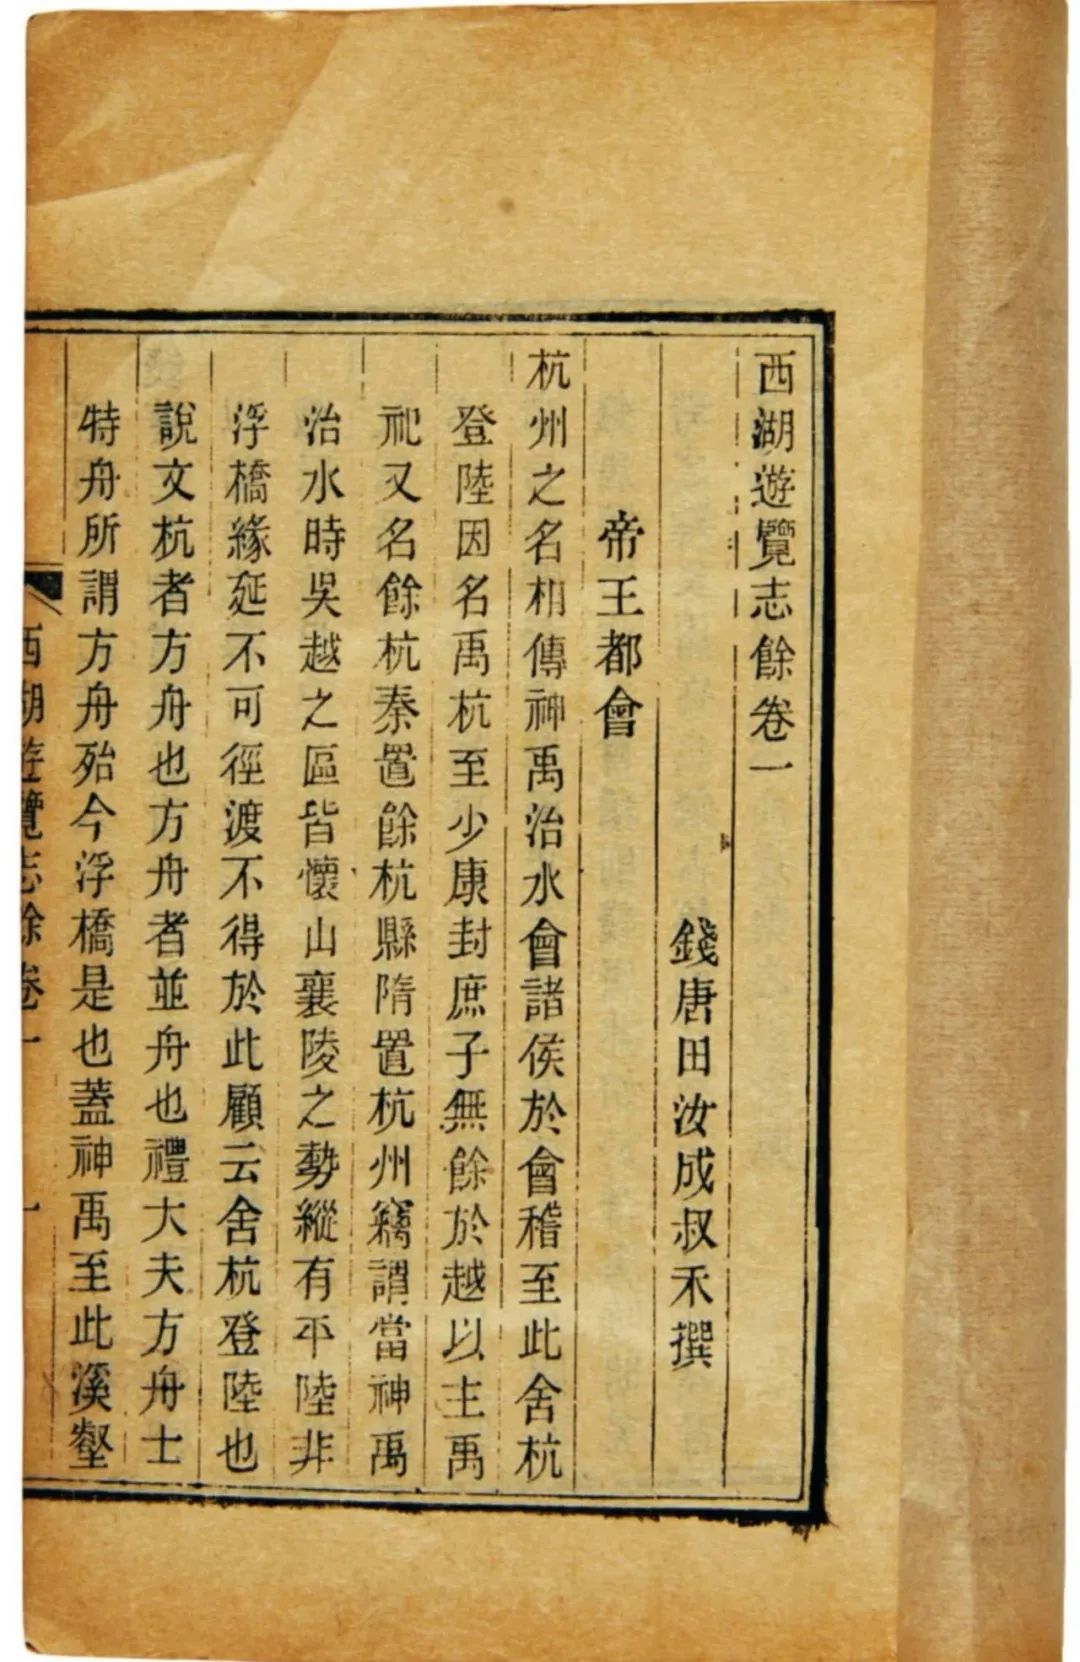 西湖遊覽志餘卷一
錢唐田汝成叔禾撰
帝王都會
杭州之名相傳神禹治水會諸侯於會稽至此舍杭
登陸因名禹杭至少康封庶子無餘於越以主禹
祀又名餘杭秦置餘杭縣隋置杭州竊謂當神禹
治水時吳越之區皆懷山襄陵之勢縱有平陸非
浮橋緣延不可徑渡不得於此顧云舍杭登陸也
說文杭者方舟也方舟者並舟也禮大夫方舟士
特舟所謂方舟殆今浮橋是也蓋神禹至此溪壑
西湖遊覽志餘卷一 一